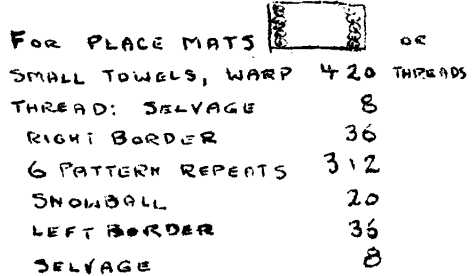 FOR PLACE MATS OR
SMALL TOWELS, WARP 420 THREADS
THREAD: SELVAGE 8
RIGHT BORDER 36
6 PATTERN REPEATS 312
SNOWBALL 20
LEFT BORDER 36
SELVAGE 8